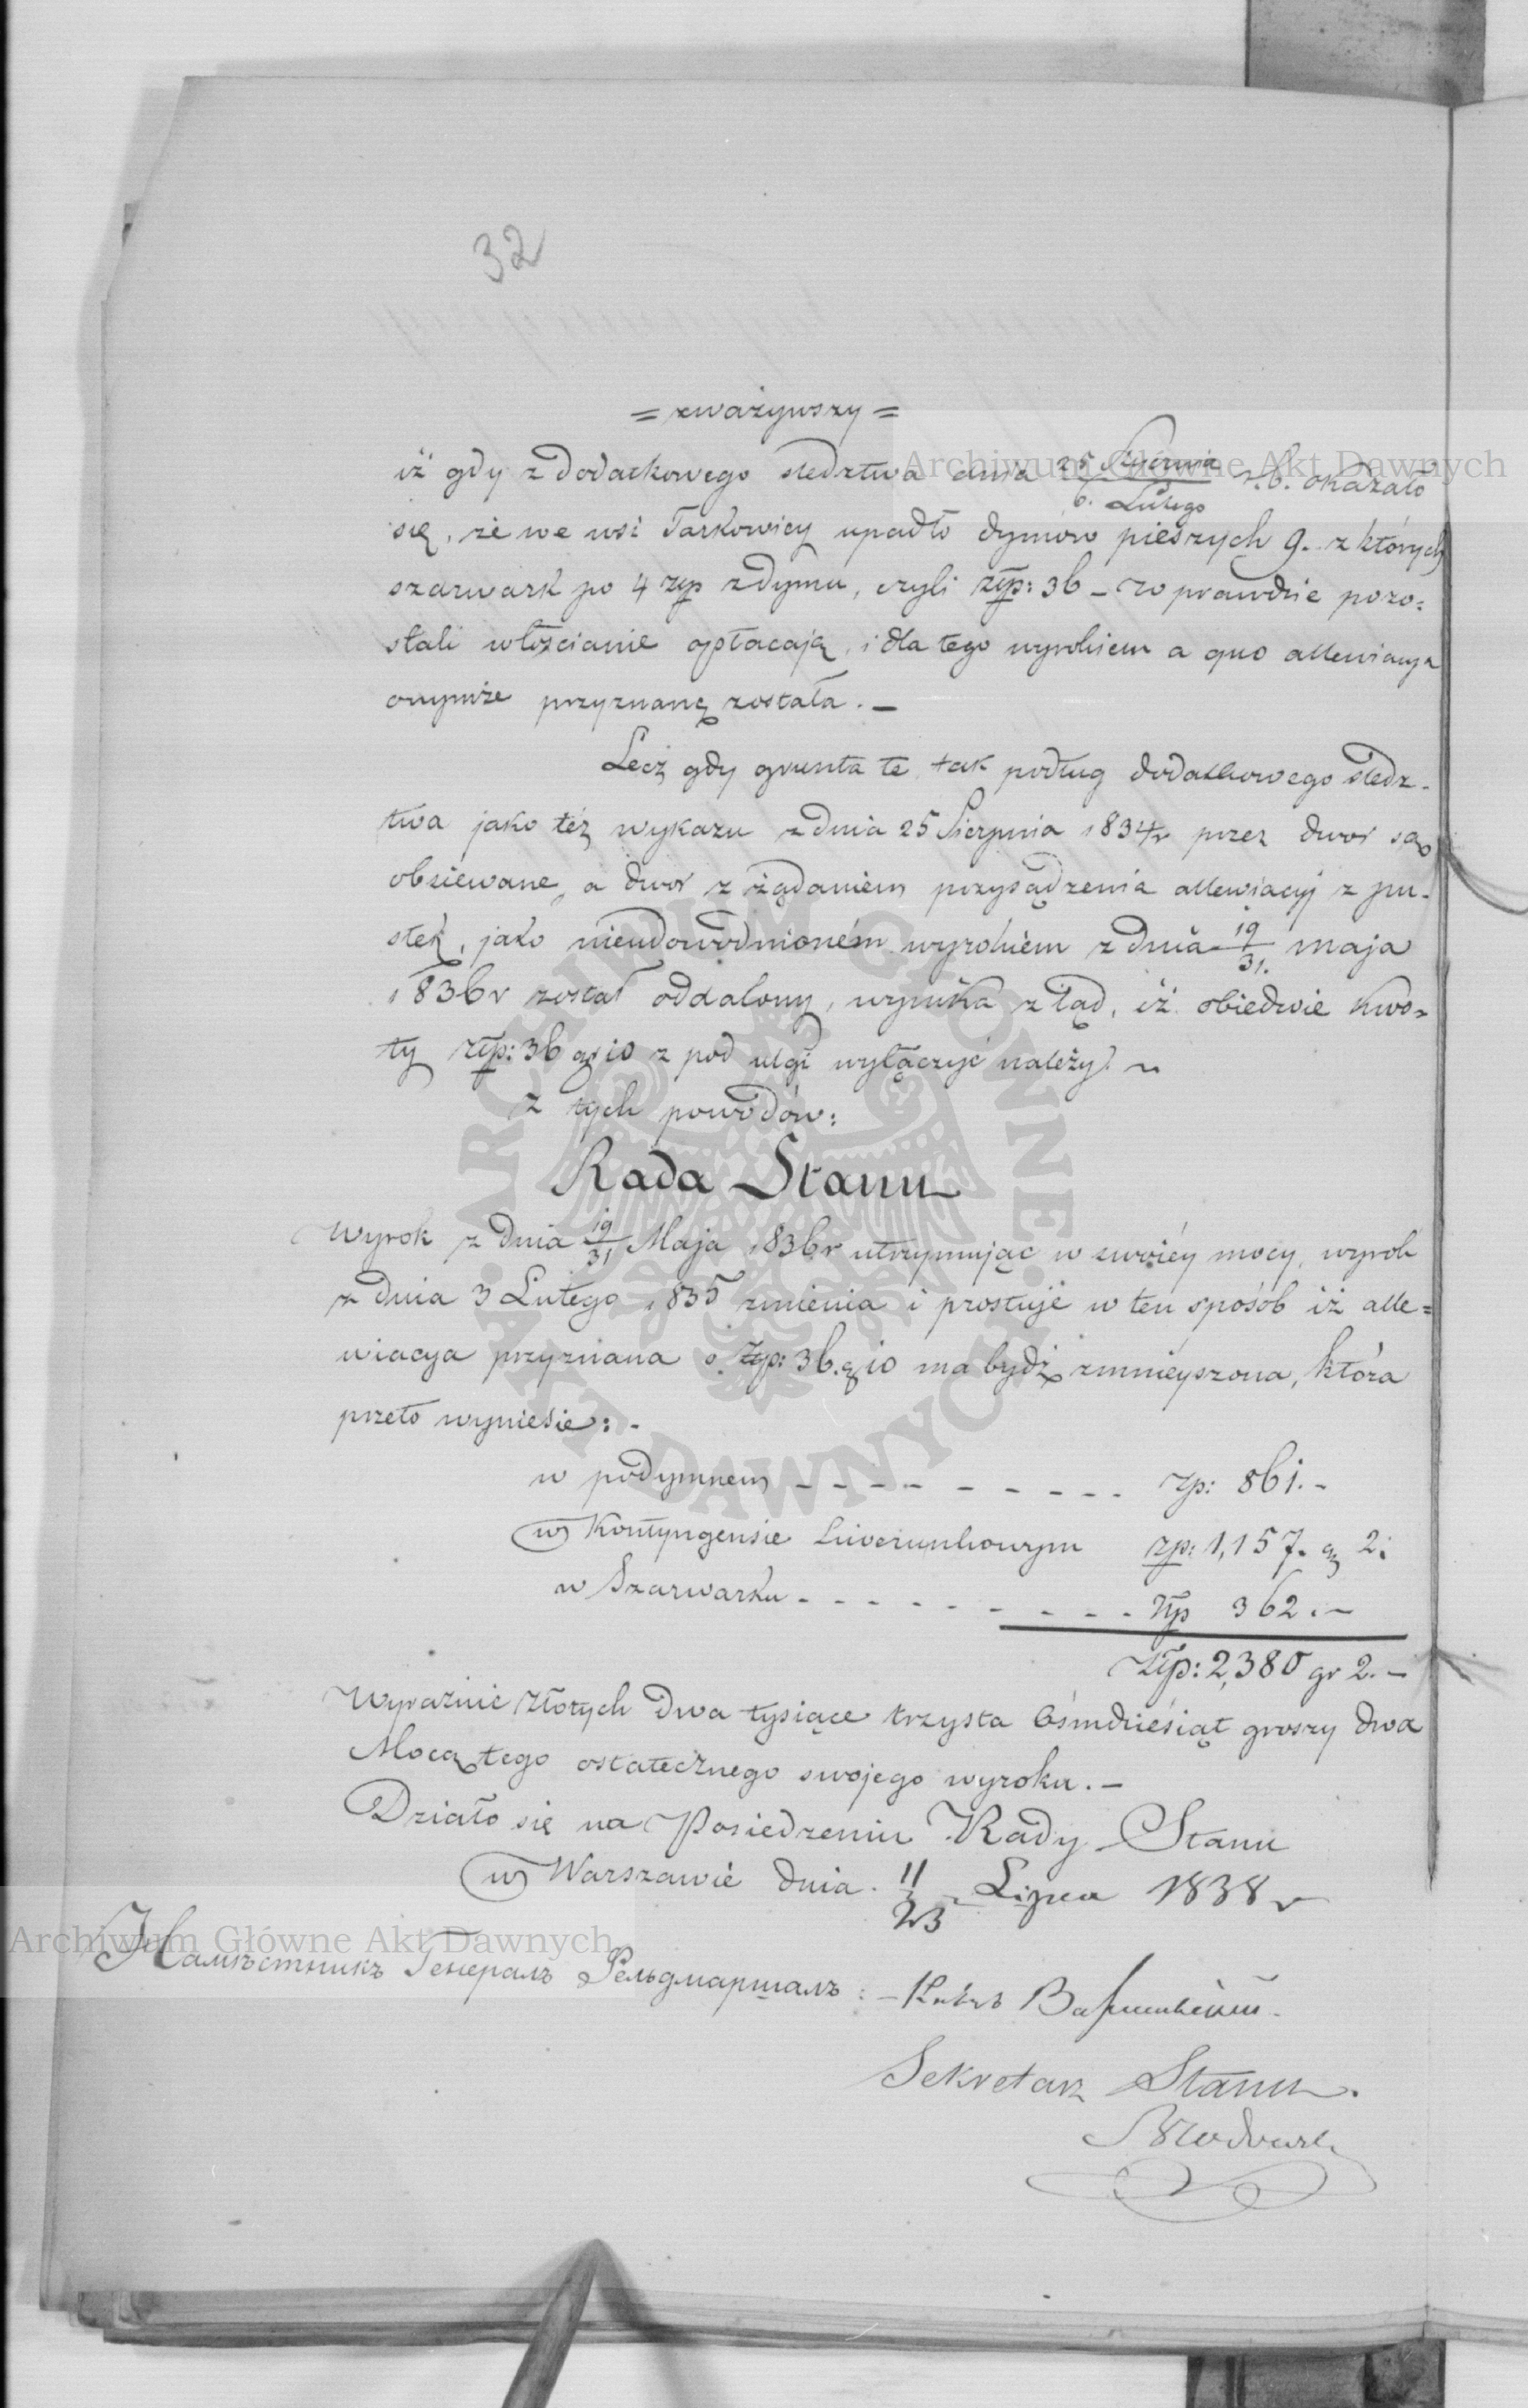 32
= zważywszy =
iż gdy z dodatkowego sledztwa dnia 25 Stycznia / 6. Lutego r. b. okazało
się, że we wsi Tarkowicy upadło dymów pieszych 9. z których
szarwark po 4 złp z dymu, czyli złp: 36 – w prawdzie pozo=
stali włościanie opłacają, i dla tego wyrokiem a quo allewiacya
onymże przyznaną została. –
Lecz gdy grunta te, tak podług dodatkowego sledz-
twa jako też wykazu z dnia 25 Sierpnia 1834 r przez dwór są
obsiewane, a dwór z żądaniem przysądzenia allewiacyi z pu-
stek, jako nieudowodnioném wyrokiem z dnia 19/31. maja
1836 r został oddalony, wynika z tąd, iż obiedwie kwo-
ty złp: 36 gr 10 z pod ulgi wyłączyć należy. ~
z tych powodów:
Rada Stanu
Wyrok z dnia 19/31 Maja 1836 r utrzymując w swoiéy mocy, wyrok
z dnia 3 Lutego 1835 zmienia i prostuje w ten sposób iż alle=
wiacya przyznana o złp: 36. g 10 ma bydź zmnieyszona, która
przeto wyniesie: -
w podymnem - - - - - - - - - zp: 861. -
w Kontyngensie Liwerunkowym zp: 1,157. g 2.
w Szarwarku - - - - - - - - - złp 362. –
złp: 2,380 gr 2. –
Wyraźnie złotych Dwa tysiące trzysta Ośmdziesiąt groszy dwa
Mocą tego ostatecznego swojego wyroku. –
Działo się na Posiedzeniu Rady Stanu
w Warszawie dnia 11/23 Lipca 1838 r
Намѣстникъ Генералъ Фельдмаршалъ: – Князь Варшавскій
Sekretarz Stanu.
Archiwum Główne Akt Dawnych
ARCHIWUM GŁÓWNE · AKT DAWNYCH ·
Archiwum Główne Akt Dawnych